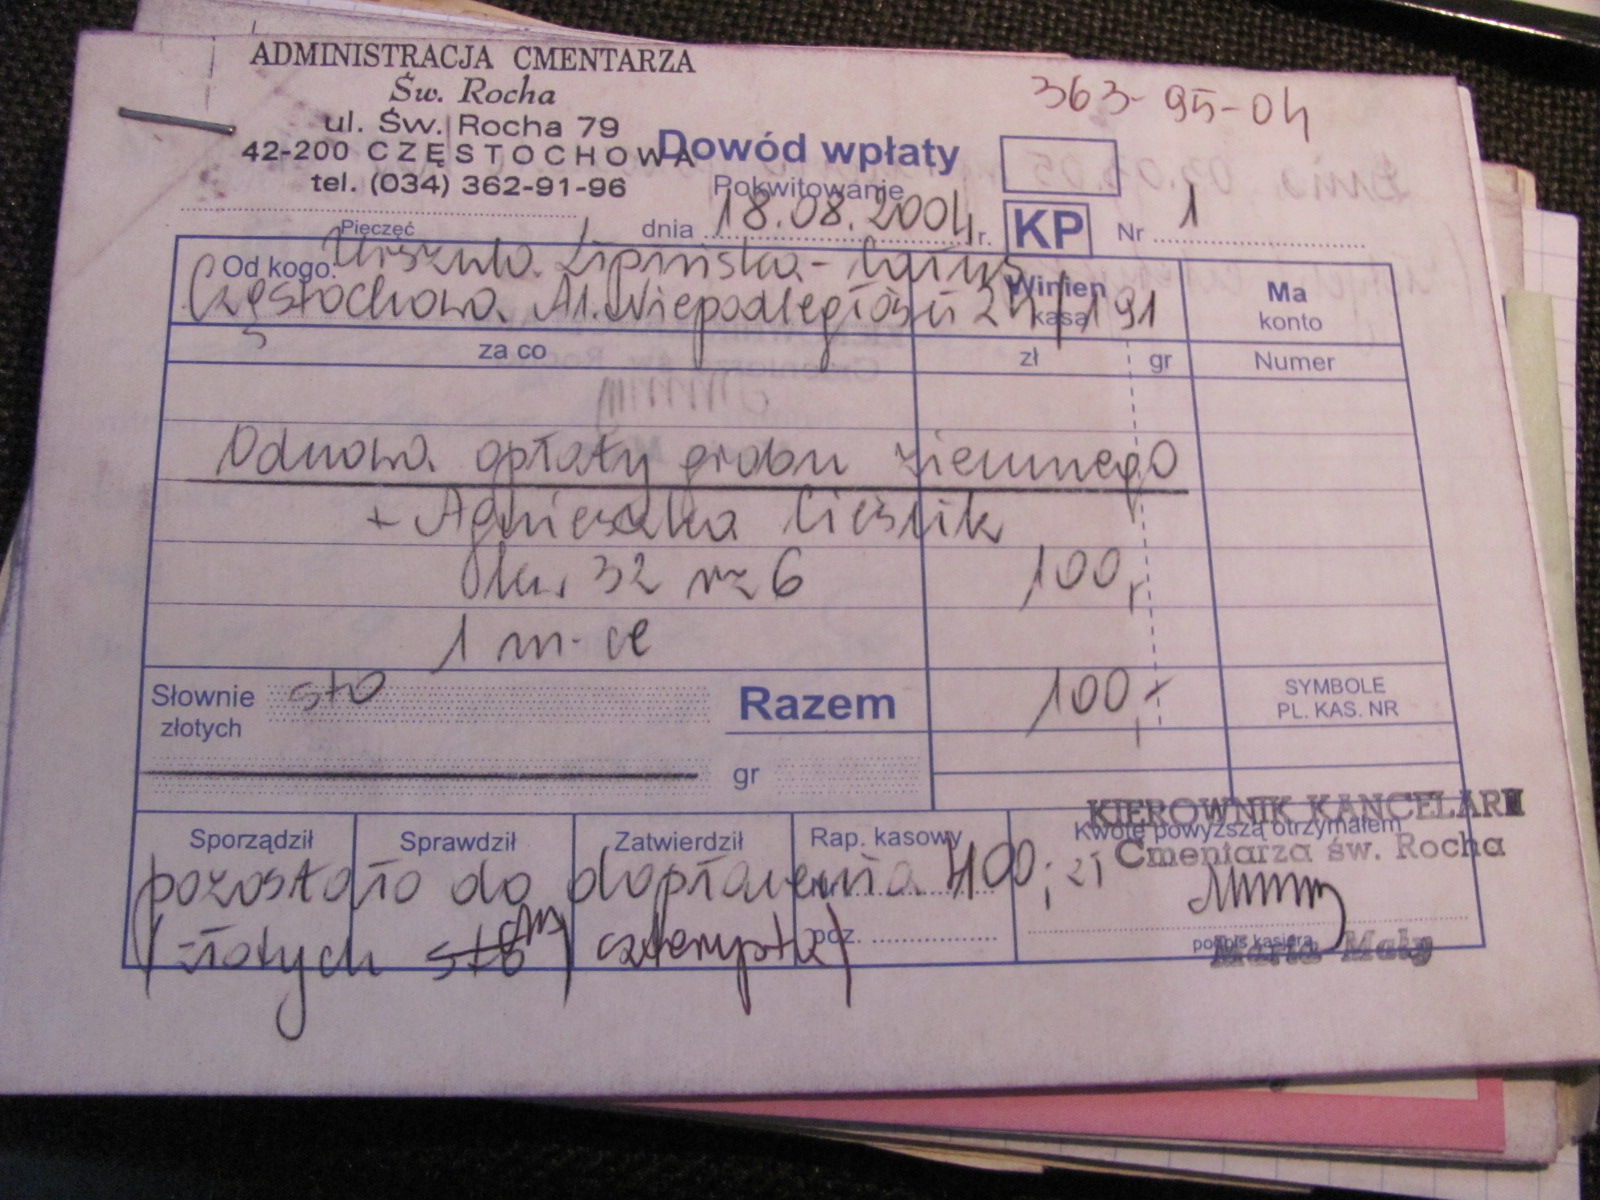 ADMINISTRACJA CMENTARZA
Św. Rocha
ul. Św. Rocha 79
42-200 CZĘSTOCHOWA
tel. (034) 362-91-96
363-95-04
Dowód wpłaty
Pokwitowanie
Pieczęć
dnia 18.08.2004 r.
KP
Nr 1
Od kogo: Urszula Lipińska-
Częstochowa Al. Niepodległości 24/191
Winien
kasa
Ma
konto
za co
zł gr
Numer
Odnowa opłaty grobu ziemnego
+ Agnieszka Cieślik
32 nr 6 100,-
1 m-ce
Słownie
złotych
sto
Razem 100,-
SYMBOLE
PL. KAS. NR
gr
KIEROWNIK KANCELARII
Cmentarza św. Rocha
Sporządził
Sprawdził
Zatwierdził
Rap. kasowy
Kwotę powyższą otrzymałem
pozostało do dopłacenia 400,- zł
(złotych sto) czterysta)
poz.
podpis kasjera
Maria Mały